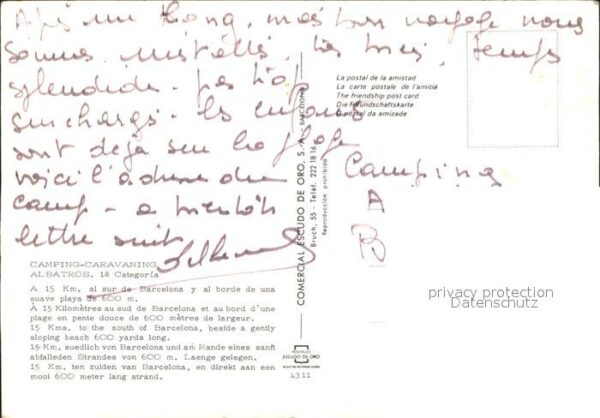 Après un long, mais bon voyage nous
sommes installés, très bien, temps
splendide. pas trop
surchargé. les enfants
sont déjà sur la plage
voici l'adresse du
camp - a bientôt
lettre suit
Camping
A
B
La postal de la amistad
La carte postale de l'amitié
The friendship post card
Die Freundschaftskarte
O postal de amizade
COMERCIAL ESCUDO DE ORO, S. A. - BARCELONA
Bruch, 55 - Tel. 222 18 16
Reproducción prohibida
CAMPING-CARAVANING
ALBATROS, 1ª Categoría
A 15 Km. al sur de Barcelona y al borde de una
suave playa de 600 m.
À 15 Kilomètres au sud de Barcelone et au bord d'une
plage en pente douce de 600 mètres de largeur.
15 Kms. to the south of Barcelona, beside a gently
sloping beach 600 yards long.
15 Km. suedlich von Barcelona und am Rande eines sanft
abfalleden Strandes von 600 m. Laenge gelegen.
15 Km. ten zuiden van Barcelona, en direkt aan een
mool 600 meter lang strand.
POSTALES
ESCUDO DE ORO
4311
privacy protection
Datenschutz